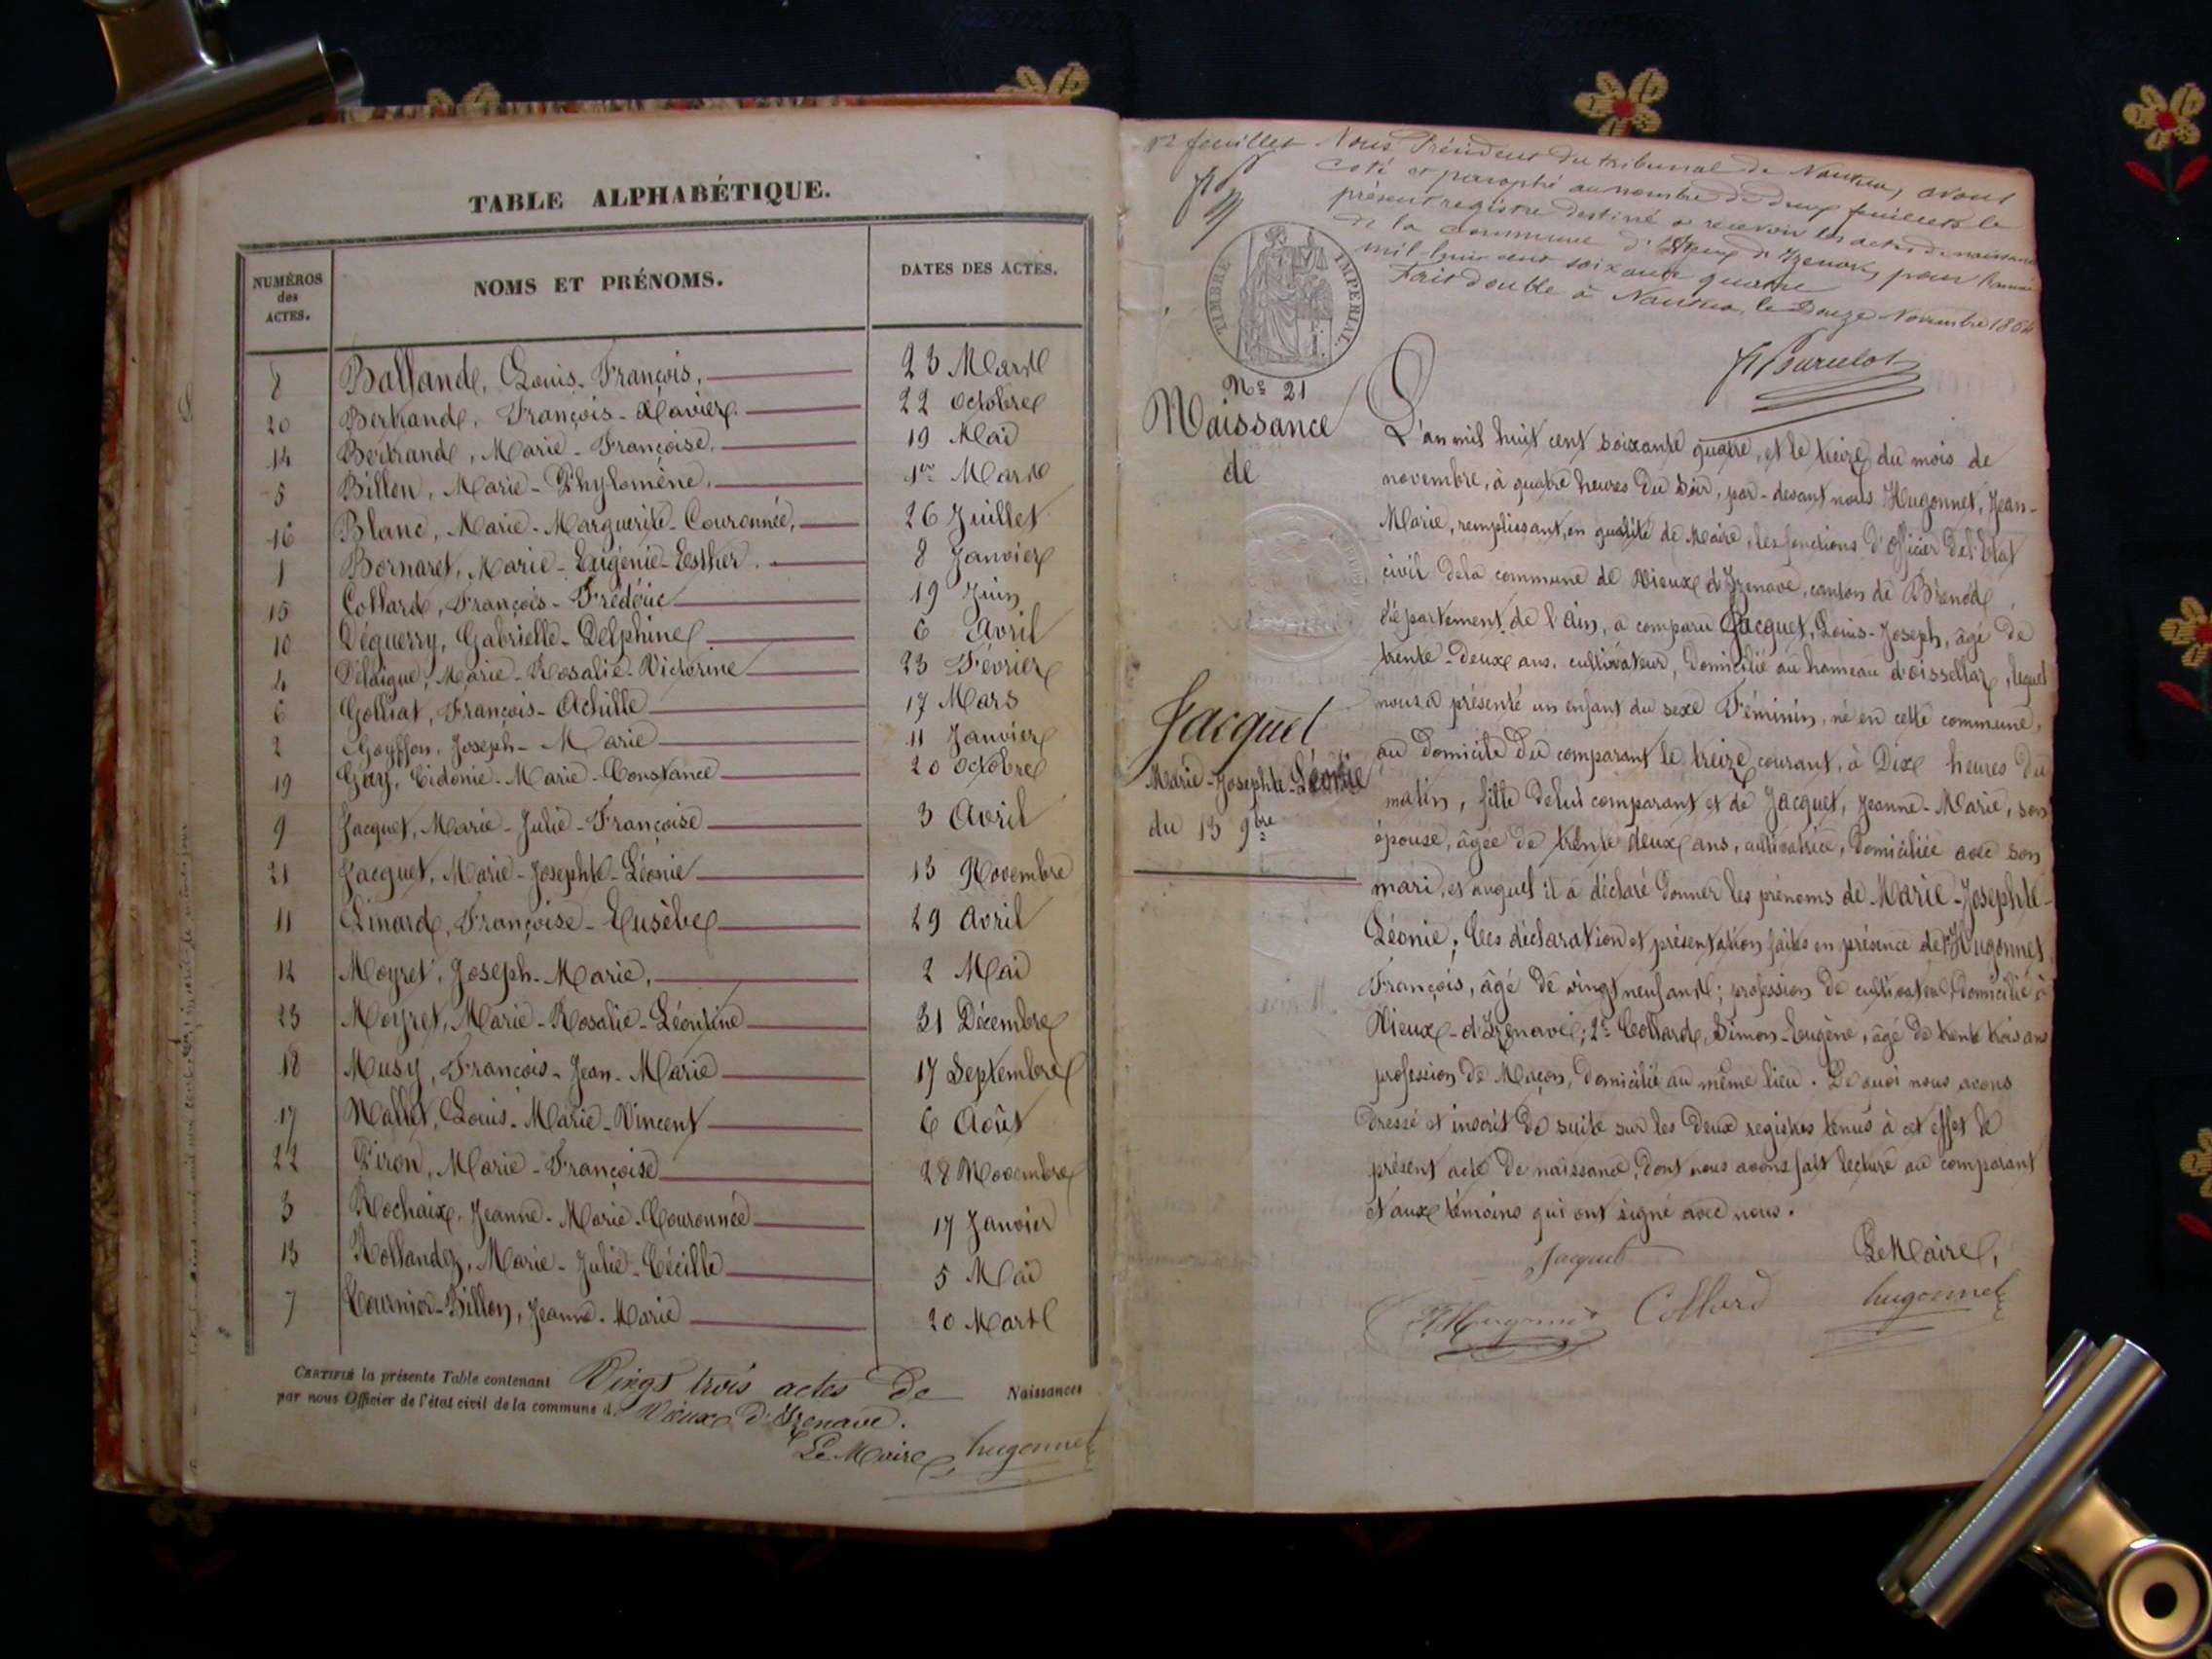 TABLE ALPHABÉTIQUE.
NUMÉROS des ACTES. NOMS ET PRÉNOMS. DATES DES ACTES.
8 Balland, Louis-François, 23 Mars
20 Bertrand, François-Xavier. 22 Octobre
14 Bertrand, Marie-Françoise. 19 Mai
5 Billon, Marie-Phylomène. 1er Mars
16 Blanc, Marie-Marguerite-Couronnée, 26 Juillet
1 Bornaret, Marie-Eugénie-Esther. 8 Janvier
15 Collard, François-Frédéric 19 Juin
10 Déguerry, Gabrielle-Delphine 6 Avril
4 Délaigue, Marie-Rosalie-Victorine 23 Février
6 Golliat, François-Achille 17 Mars
2 Goyffon, Joseph-Marie 11 Janvier
19 Guy, Cidonie-Marie-Constance 20 Octobre
9 Jacquet, Marie-Julie-Françoise 3 Avril
21 Jacquet, Marie-Josephte-Léonie 13 Novembre
11 Linard, Françoise-Eusèbe 29 Avril
12 Moyret, Joseph-Marie, 2 Mai
23 Moyret, Marie-Rosalie-Léontine 31 Décembre
18 Musy, François-Jean-Marie 17 Septembre
17 Nallet, Louis-Marie-Vincent 6 Août
22 Piron, Marie-Françoise 28 Novembre
3 Rochaix, Jeanne-Marie-Couronnée 17 Janvier
13 Rollandez, Marie-Julie-Cécille 5 Mai
7 Tournier-Billon, Jeanne-Marie 20 Mars
CERTIFIÉ la présente Table contenant Vingt trois actes de Naissances
par nous Officier de l'état civil de la commune d. Vieux d'Izenave.
Le Maire, hugonnet
1er feuillet Nous Président du tribunal de Nantua, avons
coté et paraphé au nombre de deux feuillets le
présent registre destiné à recevoir les actes de naissance
de la commune d' Vieux d'Izenave, pour l'année
mil huit cent soixante quatre
Fait double à Nantua, le Douze Novembre 1864
TIMBRE IMPÉRIAL.
No 21
Naissance
de
Jacquet
Marie-Josephte-Léonie
du 13 9bre
L'an mil huit cent soixante quatre, et le treize du mois de
novembre, à quatre heures du soir, par-devant nous Hugonnet, Jean-
Marie, remplissant, en qualité de Maire, les fonctions d'Officier de l'Etat
civil de la commune de Vieux d'Izenave, canton de Brénod,
département de l'Ain, a comparu Jacquet, Louis-Joseph, âgé de
trente-deux ans, cultivateur, domicilié au hameau d'Oissellaz, lequel
nous a présenté un enfant du sexe Féminin, né en cette commune,
au domicile du comparant le treize courant, à Dix heures du
matin, fille de lui comparant et de Jacquet, Jeanne-Marie, son
épouse, âgée de trente deux ans, cultivatrice, domiciliée avec son
mari, et auquel il a déclaré donner les prénoms de Marie-Josephte-
Léonie; les déclaration et présentation faites en présence de 1° Hugonnet
François, âgé de vingt neuf ans; profession de cultivateur, domicilié à
Vieux-d'Izenave; 2° Collard, Simon-Eugène, âgé de trente trois ans
profession de Maçon, domicilié au même lieu. De quoi nous avons
dressé et inscrit de suite sur les deux registres tenus à cet effet le
présent acte de naissance, dont nous avons fait lecture au comparant
et aux témoins qui ont signé avec nous.
Jacquet Le Maire,
Hugonnet Collard hugonnet